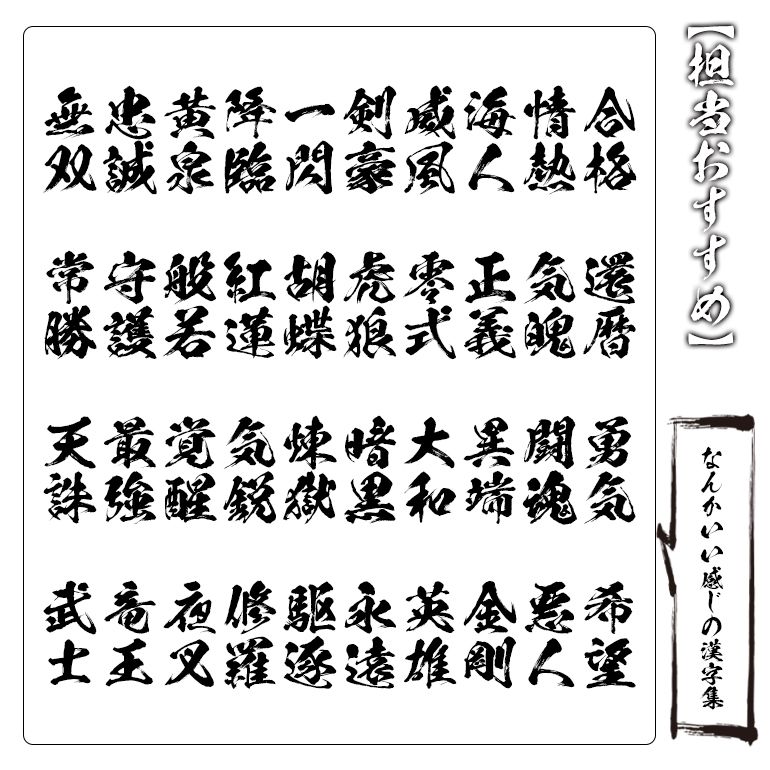 【担当おすすめ】
なんかいい感じの漢字集
合格
情熱
海人
威風
剣豪
一閃
降臨
黄泉
忠誠
無双
還暦
気魄
正義
零式
虎狼
胡蝶
紅蓮
般若
守護
常勝
勇気
闘魂
異端
大和
暗黒
煉獄
気鋭
覚醒
最強
天誅
希望
悪人
金剛
英雄
永遠
駆逐
修羅
夜叉
竜王
武士